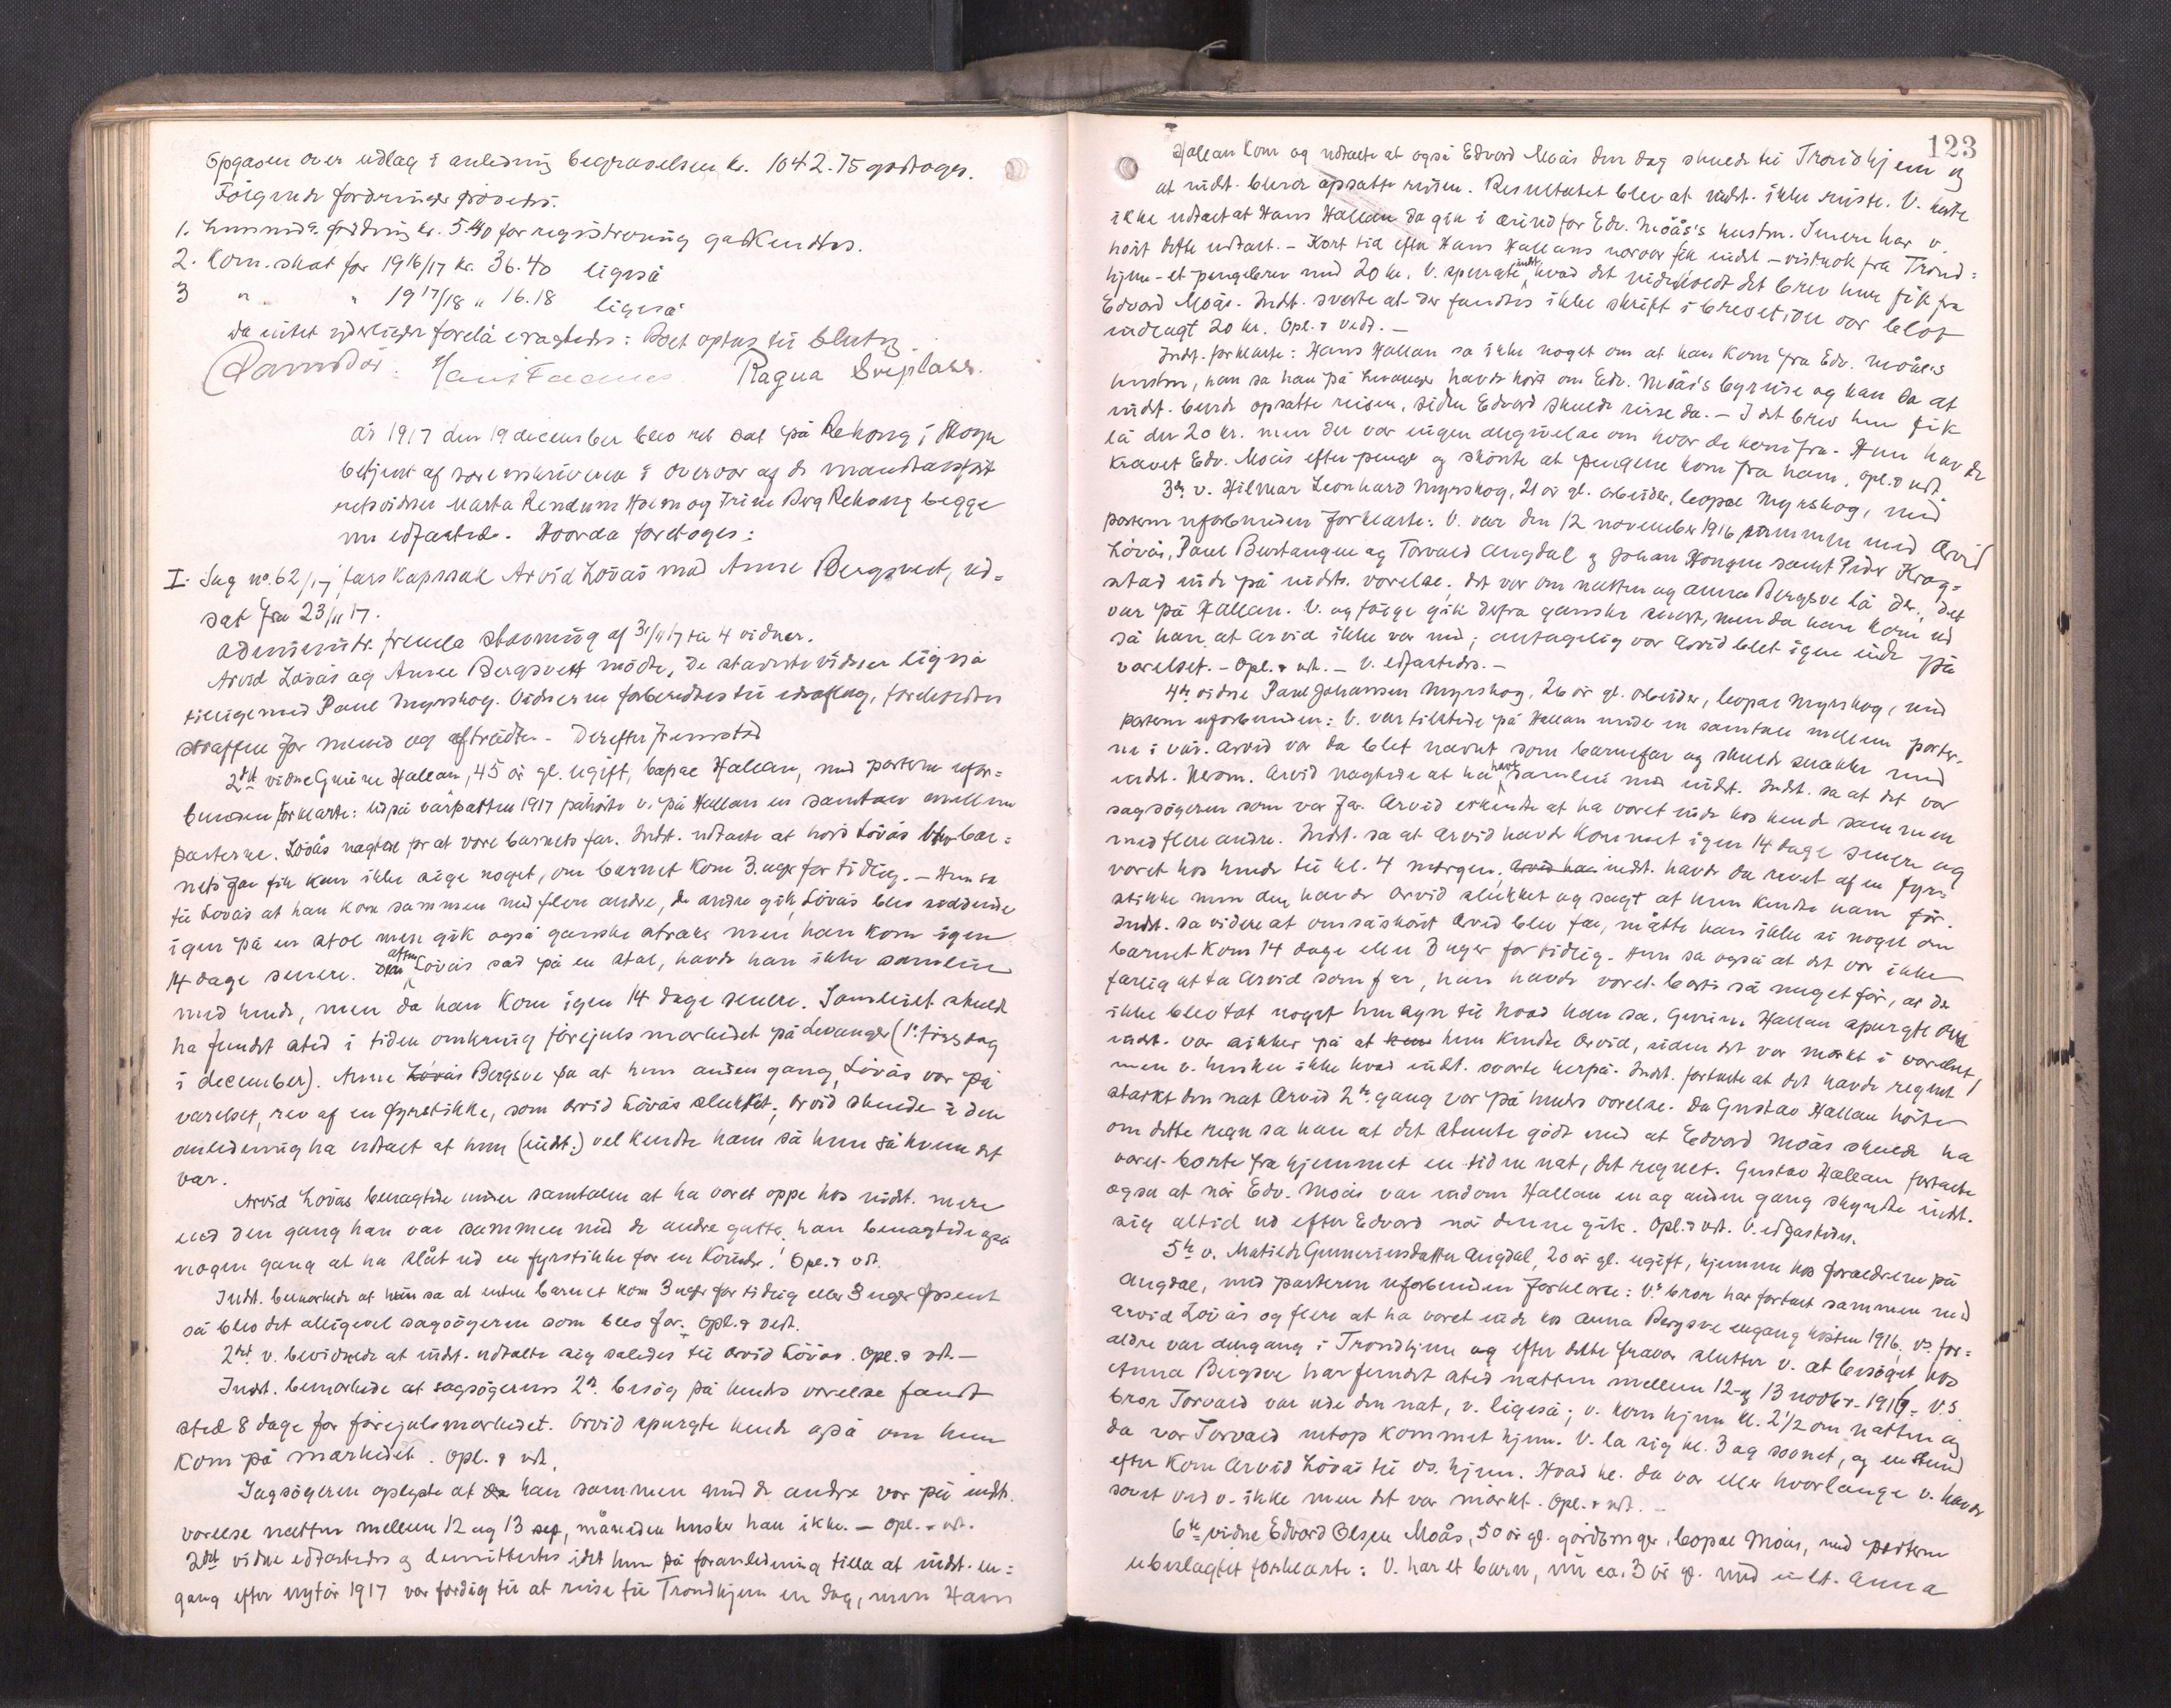 Opgaven over udlag i anledning begravelsen kr. 1042.75 godtoges.
Følgende fordringer prøvedes.
1. fordring kr. 5.40 for registrering godkjendtes.
2. Kom. skat for 1916/17 kr. 36.40 ligeså
3 " " 1917/18 " 16.18 ligeså
Da intet yderligere forelå eragtedes: Boet optas til slutn.
Ragna Sveplass.
År 1917 den 19 december blev ret sat på Rekong i Skogn
betjent af sorenskriveren i overvær af de mandtalsførte
retsvidner Marta Rendum Holm og Trine Berg Rekong begge
nu edfæstede. Hvorda foretoges:
I. Sag no. 62/17 farskapssak Arvid Lövås mod Anne Bergsvet, ud=
sat fra 23/11 17.
Administr. fremla stævning af 3/11 17 til 4 vidner.
Arvid Lövås og Anne Bergsvett mödte, de stævnte vidner ligeså
tilligemed Paul Myrskog. Vidnerne forberedtes til edsaflæg, foreholdtes
straffen for mened og aftrådte. Derefter fremstod
2det vidne Gurine Hallan, 45 år gl. ugift, bopæl Hallan, med parterne ufor=
bunden forklarte: Ud på vårparten 1917 påhörte v. på Hallan en samtale mellem
parterne. Lövås nægtet for at være barnets far. Indst. udtalte at hvis Lövås blev bar=
nets far fik han ikke sige noget, om barnet kom 3 uger for tidlig. – Hun sa
til Lövås at han kom sammen med flere andre, de andre gik, Lövås blev siddende
igjen på en stol men gik også ganske straks men han kom igen
14 dage senere. Den aften Lövås sad på en stol, havde han ikke samleie
med hende, men da han kom igen 14 dage senere. Samleiet skulde
ha fundet sted i tiden omkring förejulsmarkedet på Levanger (1ste tirsdag
i december). Anne Lövås Bergsve sa at hun anden gang, Lövås var på
værelset, rev af en fyrstikke, som Arvid Lövås slukket; Arvid skulde i den
anledning ha udtalt at hun (indst.) vel kendte ham så hun så hvem det
var.
Arvid Lövås benægtede under samtalen at ha været oppe hos indst. mere
end den gang han var sammen med de andre gutter, han benægtede også
nogen gang at ha slåt ud en fyrstikke for en kvinde! Opl. & vdt.
Indst. bemærkede at hun sa at enten barnet kom 3 uger for tidlig eller 3 uger forsent
så blev det alligevel sagsögeren som blev far. Opl. & vedt.
2det v. bevidnede at indst. udtalte sig således til Arvid Lövås. Opl. & vdt. –
Indst. bemærkede at sagsögerens 2det besög på hendes værelse fandt
sted 8 dage for förejulsmarkedet. Arvid spurgte hende også om hun
kom på markedet. Opl. & vdt.
Sagsögeren oplyste at da han sammen med de andre var på indst.
værelse natten mellem 12 og 13 sep, måneden husker han ikke. – Opl. & vdt.
2det vidne edfæstedes og demitteredes idet hun på foranledning tilla at indst. en=
gang efter nytår 1917 var færdig til at reise til Trondhjem en dag, men Hans
123
Hallan kom og udtalte at også Edvard Moås den dag skulde til Trondhjem og
at indst. burde opsætte reisen. Resultatet blev at indst. ikke reiste. V. hørte
ikke udtalt at Hans Hallan da gik i ærend for Edv. Moås's hustru. Senere har v.
hört dette udtalt. – Kort tid efter Hans Hallans nærvær fik indst – vistnok fra Trond=
hjem – et pengebrev med 20 kr. V. spurgte indst. hvad det indeholdt det brev hun fik fra
Edvard Moås. Indst. svarte at der fandtes ikke skrift i brevet, der var blot
indlagt 20 kr. Opl. & vedt. –
Indst. forklarte: Hans Hallan sa ikke noget om at han kom fra Edv. Moås's
hustru, han sa han på Levanger havde hört om Edv. Moås's bereise og han sa at
indst. burde opsætte reisen, siden Edvard skulde reise da. – I det brev hun fik
lå der 20 kr. men der var ingen angivelse om hvor de kom fra. Hun havde
krævet Edv. Moås efter penge og skönte at pengene kom fra ham. Opl. & vdt.
3die v. Hilmar Leonhard Myrskog, 21 år gl. arbeider, bopæl Myrskog, med
parterne uforbunden forklarte: V. var den 12 november 1916 sammen med Arvid
Lövås, Paul Burtangen og Torvald Augdal og Johan Hongen samt Peder Krog=
stad inde på indst. værelse; det var om natten og Anna Bergsve lå der, det
var på Hallan. V. og fölge gik derfra ganske snart, men da han kom ud
så han at Arvid ikke var med; antagelig var Arvid blet igen inde på
værelset. – Opl. & vdt. – V. edfæstedes. –
4de vidne Paul Johansen Myrskog, 26 år gl. arbeider, bopæl Myrskog, med
parterne uforbunden: V. var tilstede på Hallan under en samtale mellem parter-
ne i vår. Arvid var da blet nævnt som barnefar og skulde snakke med
indst. herom. Arvid nægtede at ha havt samleie med indst. Indst. sa at det var
sagsögeren som var far. Arvid erkendte at ha været inde hos hende sammen
med flere andre. Indst. sa at Arvid havde kommet igen 14 dage senere og
været hos hende til kl. 4 morgen. Arvid har indst. havde da revet af en fyr-
stikke men den havde Arvid slukket og sagt at hun kendte ham för.
Indst. sa videre at omsåsköint Arvid blev far, måtte han ikke si noget om
barnet kom 14 dage eller 3 uger for tidlig. Hun sa også at det var ikke
farlig at ta Arvid som far, han havde været borti så meget för, at der
ikke blev tat noget hensyn til hvad han sa. Gurine Hallan spurgte om
indst. var sikker på at hun kendte Arvid, siden det var mørkt i værelset,
men v. husker ikke hvad indst. svarte herpå. Indst. fortalte at det havde regnet
stærkt den nat Arvid 2den gang var på hendes værelse. Da Gustav Hallan hörte
om dette regn sa han at det stemte godt med at Edvard Moås skulde ha
været borte fra hjemmet en tid en nat, det regnet. Gustav Hallan fortalte
også at når Edv. Moås var indom Hallan en og anden gang skyndte indst.
sig altid ud efter Edvard når denne gik. Opl. & vdt. V. edfæstedes.
5te v. Matilde Gunneriusdatter Augdal, 20 år gl. ugift, hjemme hos forældrene på
Augdal, med parterne uforbunden forklarte: V.s bror har fortalt sammen med
Arvid Lövås og flere at ha været inde hos Anna Bergsve engang hösten 1916. Vs. for=
ældre var dengang i Trondhjem og efter dette fravær slutter v. at besöget hos
Anna Bergsve har fundet sted natten mellem 12 og 13 novbr. 1916. V.s
bror Torvald var ude den nat, v. ligeså; v. kom hjem kl. 2½ om natten og
da var Torvald netop kommet hjem. V. la sig kl. 3 og sovnet, og en stund
efter kom Arvid Lövås til vs. hjem. Hvad kl. da var eller hvorlænge v. havde
sovet ved v. ikke men det var mörkt. Opl. & vdt. –
6te vidne Edvard Olsen Moås, 50 år gl. gårdbruger, bopæl Moås, med parterne
ubeslægtet forklarte: V. har et barn, nu ca. 3 år gl. med indst. Anna